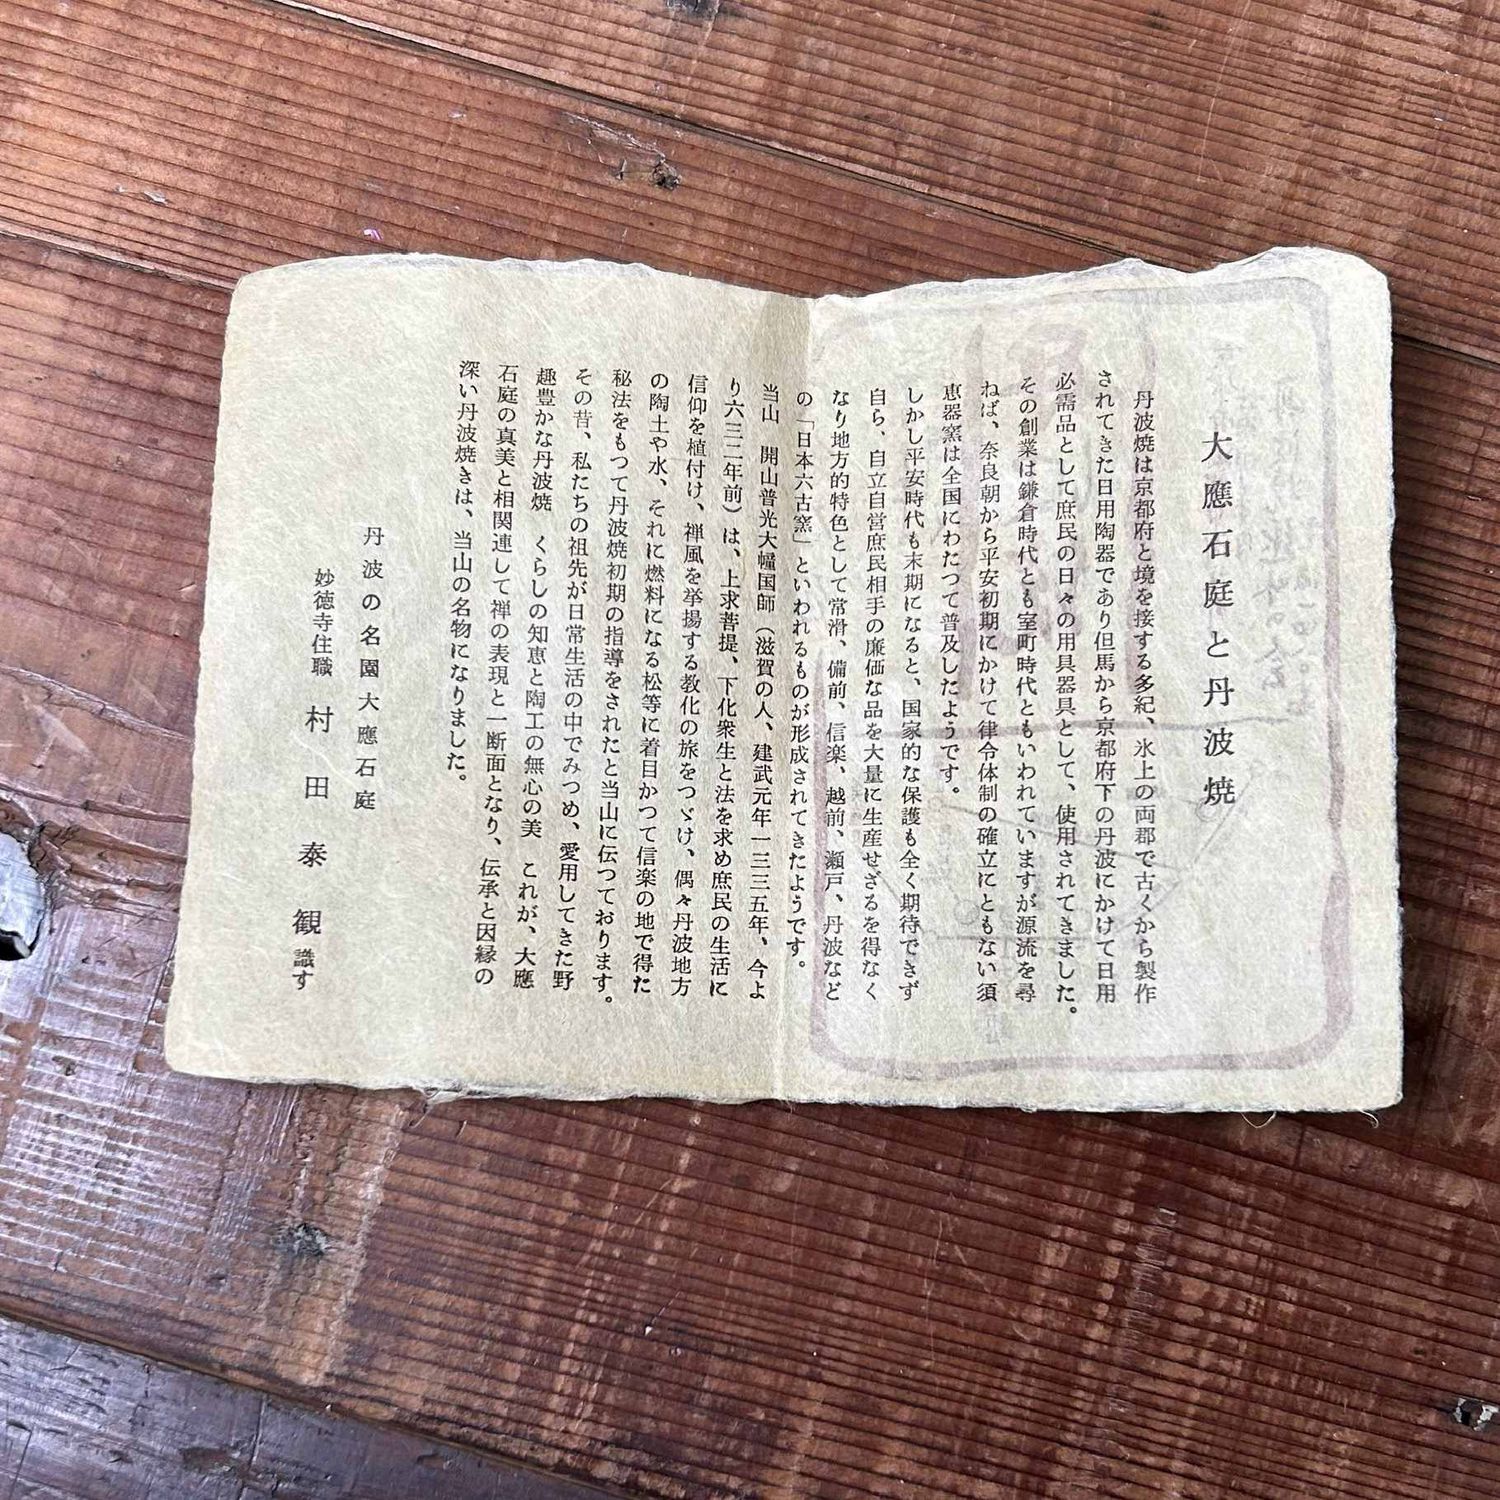 大應石庭と丹波焼
丹波焼は京都府と境を接する多紀、氷上の両郡で古くから製作
されてきた日用陶器であり但馬から京都府下の丹波にかけて日用
必需品として庶民の日々の用具器具として、使用されてきました。
その創業は鎌倉時代とも室町時代ともいわれていますが源流を尋
ねば、奈良朝から平安初期にかけて律令体制の確立にともない須
恵器窯は全国にわたつて普及したようです。
しかし平安時代も末期になると、国家的な保護も全く期待できず
自ら、自立自営庶民相手の廉価な品を大量に生産せざるを得なく
なり地方的特色として常滑、備前、信楽、越前、瀬戸、丹波など
の「日本六古窯」といわれるものが形成されてきたようです。
当山 開山普光大幢国師（滋賀の人、建武元年一三三五年、今よ
り六三二年前）は、上求菩提、下化衆生と法を求め庶民の生活に
信仰を植付け、禅風を挙揚する教化の旅をつゞけ、偶々丹波地方
の陶土や水、それに燃料になる松等に着目かつて信楽の地で得た
秘法をもつて丹波焼初期の指導をされたと当山に伝つております。
その昔、私たちの祖先が日常生活の中でみつめ、愛用してきた野
趣豊かな丹波焼 くらしの知恵と陶工の無心の美 これが、大應
石庭の真美と相関連して禅の表現と一断面となり、伝承と因縁の
深い丹波焼きは、当山の名物になりました。
丹波の名園大應石庭
妙徳寺住職 村田泰観 識す